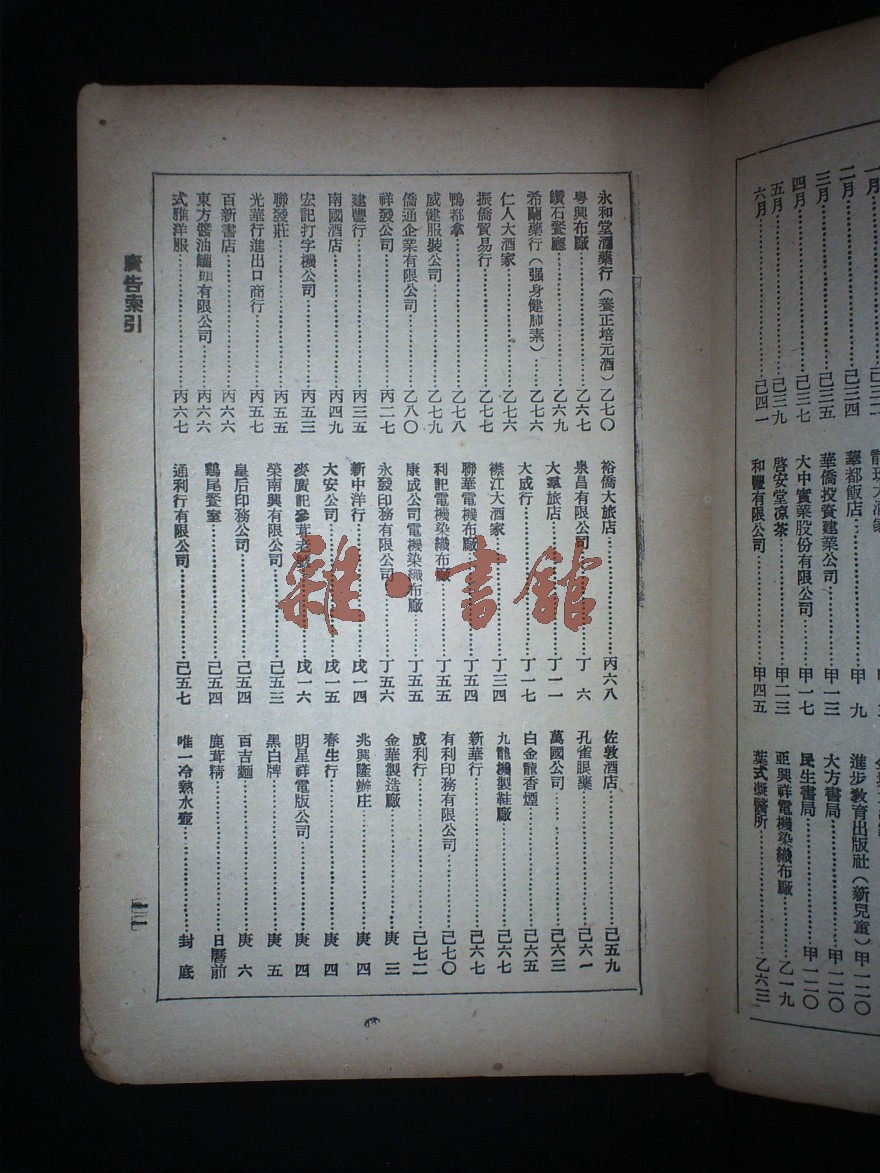 一月
二月
三月
四月
五月
六月
己三四
己三五
己三七
己三九
己四一
華都飯店
華僑投資建業公司
大中實業股份有限公司
啓安堂凉茶
和豐有限公司
甲　九
甲一三
甲一七
甲二三
甲四五
進步教育出版社（新兒童）甲一二〇
大方書局……甲一二〇
民生書局……甲一二〇
亜興祥電機染織布廠……乙一九
葉式凝醫所……乙六三
永和堂酒藥行（養正培元酒）乙七〇
粤興布廠……乙六七
鑽石餐廳……乙六九
希蘭藥行（强身健肺素）……乙七六
仁人大酒家……乙七六
振僑貿易行……乙七七
鴨都拿……乙七八
威健服裝公司……乙七九
僑通企業有限公司……乙八〇
祥發公司……丙二七
建豐行……丙三五
南國酒店……丙四九
宏記打字機公司……丙五三
聯發莊……丙五五
光華行進出口商行……丙五七
百新書店……丙六六
東方醬油罐頭有限公司……丙六六
式雅洋服……丙六七
裕僑大旅店……丙六八
泉昌有限公司……丁　六
大羣旅店……丁一一
大成行……丁一七
襟江大酒家……丁三四
聯華電機布廠……丁五四
利記電機染織布廠……丁五五
康成公司電機染織布廠……丁五五
永發印務有限公司……丁五六
新中洋行……戌一四
大安公司……戌一五
麥廣記參茸老……戌一六
榮南興有限公司……己五三
皇后印務公司……己五四
鷄尾餐室……己五四
通利行有限公司……己五七
佐敦酒店……己五九
孔雀眼藥……己六一
萬國公司……己六三
白金龍香煙……己六五
九龍機製鞋廠……己六七
新華行……己六七
有利印務有限公司……己七〇
成利行……己七二
金華製造廠……庚　三
兆興隆辦庄……庚　四
春生行……庚　四
明星祥電版公司……庚　四
黑白牌……庚　五
百吉麵……庚　六
鹿茸精……日曆前
唯一冷熱水壺……封　底
廣告索引
雜·書館